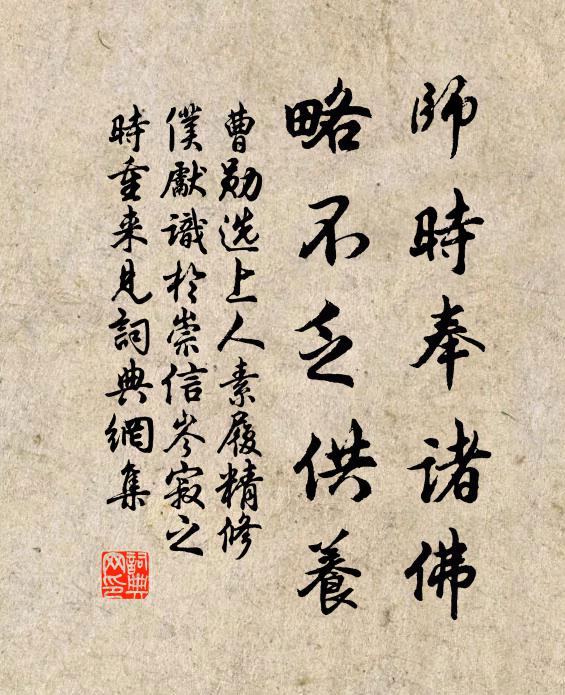 師時奉諸佛
略不乏供養
曹勛选上人素履精修
僕獻識於崇信岑寂之
時重来見詞典網集
詞典網印